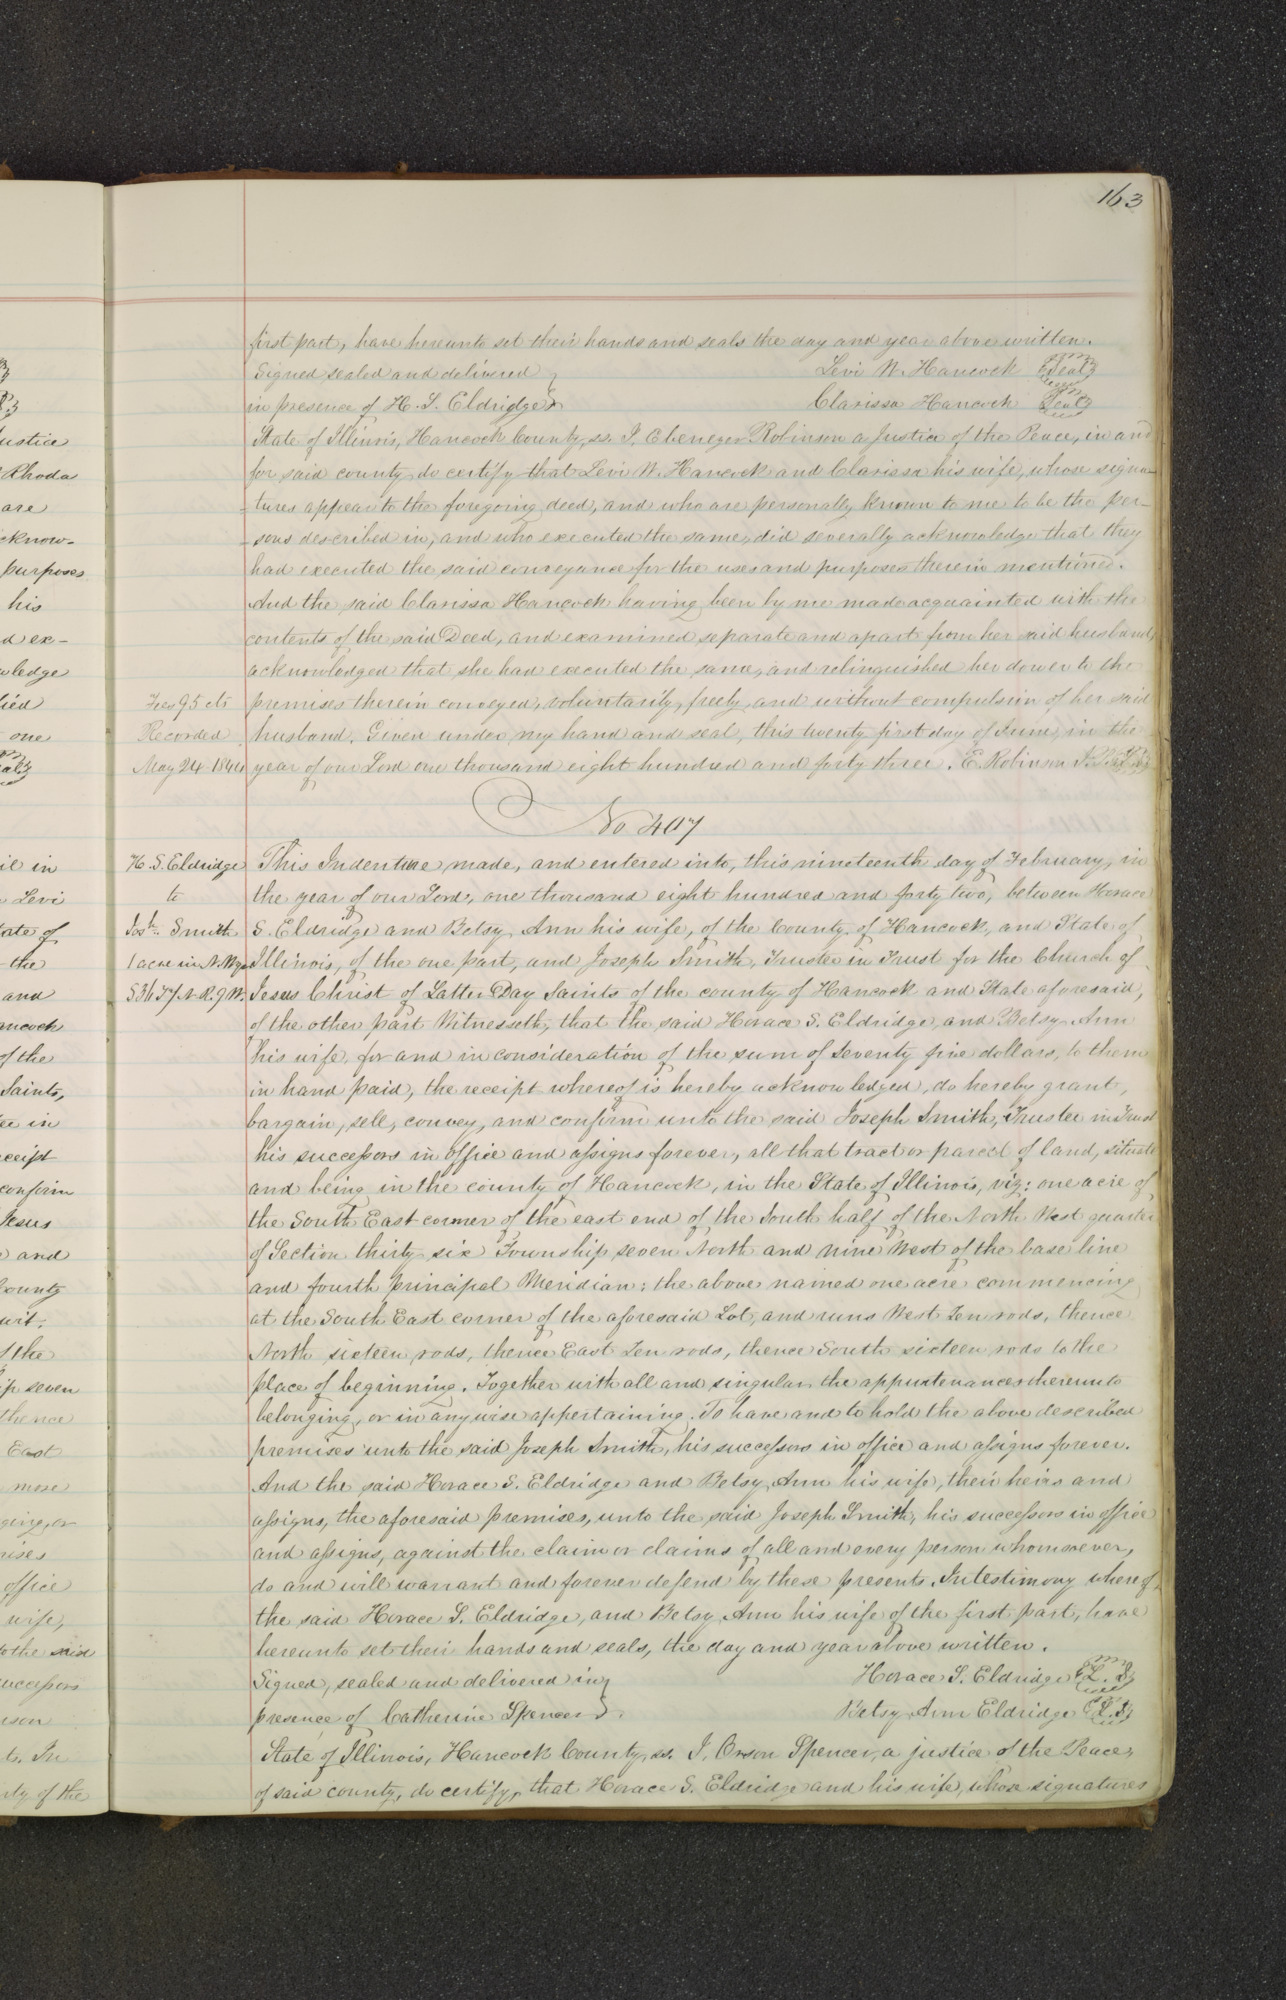 163
first part, have hereunto set their hands and seals the day and year above written.
Signed sealed and delivered } Levi W. Hancock {Seal}
in presence of H. S. Eldridge } Clarissa Hancock {Seal}
State of Illinois, Hancock County, ss. I, Ebenezer Robinson a Justice of the Peace, in and
for said county, do certify that Levi W. Hancock and Clarissa his wife, whose signa-
-tures appear to the foregoing deed, and who are personally known to me to be the per-
-sons described in, and who executed the same, did severally acknowledge that they
had executed the said conveyance for the uses and purposes therein mentioned.
And the said Clarissa Hancock having been by me made acquainted with the
contents of the said Deed, and examined separate and apart from her said husband,
acknowledged that she had executed the same, and relinquished her dower to the
Fees 95 cts premises therein conveyed, voluntarily, freely, and without compulsion of her said
Recorded husband. Given under my hand and seal, this twenty first day of June, in the
May 24 1844 year of our Lord one thousand eight hundred and forty three. E. Robinson J.P. {L.S}
No 407
H. S. Eldridge This Indenture made, and entered into, this nineteenth day of February, in
to the year of our Lord, one thousand eight hundred and forty two, between Horace
Josh. Smith S. Eldridge and Betsy Ann his wife, of the County of Hancock, and State of
1 acre in N.W.qr Illinois, of the one part, and Joseph Smith, Trustee in Trust for the Church of
S 36 T 7 N. R. 9 W. Jesus Christ of Latter Day Saints of the county of Hancock and State aforesaid,
of the other part Witnesseth, that the said Horace S. Eldridge, and Betsy Ann
his wife, for and in consideration of the sum of seventy five dollars, to them
in hand paid, the receipt whereof is hereby acknowledged, do hereby grant,
bargain, sell, convey, and confirm unto the said Joseph Smith, Trustee in Trust
his successors in office and assigns forever, all that tract or parcel of land, situate
and being in the county of Hancock, in the State of Illinois, viz: one acre of
the South East corner of the east end of the South half of the North West quarter
of Section thirty six Township seven North and nine West of the base line
and fourth principal Meridian: the above named one acre commencing
at the South East corner of the aforesaid Lot, and runs West Ten rods, thence
North sixteen rods, thence East Ten rods, thence South sixteen rods to the
place of beginning. Together with all and singular the appurtenances thereunto
belonging, or in anywise appertaining. To have and to hold the above described
premises unto the said Joseph Smith, his successors in office and assigns forever.
And the said Horace S. Eldridge and Betsy Ann his wife, their heirs and
assigns, the aforesaid premises, unto the said Joseph Smith, his successors in office
and assigns, against the claim or claims of all and every person whomsoever,
do and will warrant and forever defend by these presents. In testimony whereof,
the said Horace S. Eldridge, and Betsy Ann his wife of the first part, have
hereunto set their hands and seals, the day and year above written.
Signed, sealed and delivered in } Horace S. Eldridge {L. S}
presence of Catherine Spencer }. Betsy Ann Eldridge {L.S}
State of Illinois, Hancock County, ss. I, Orson Spencer, a justice of the Peace,
of said county, do certify, that Horace S. Eldridge and his wife, whose signatures